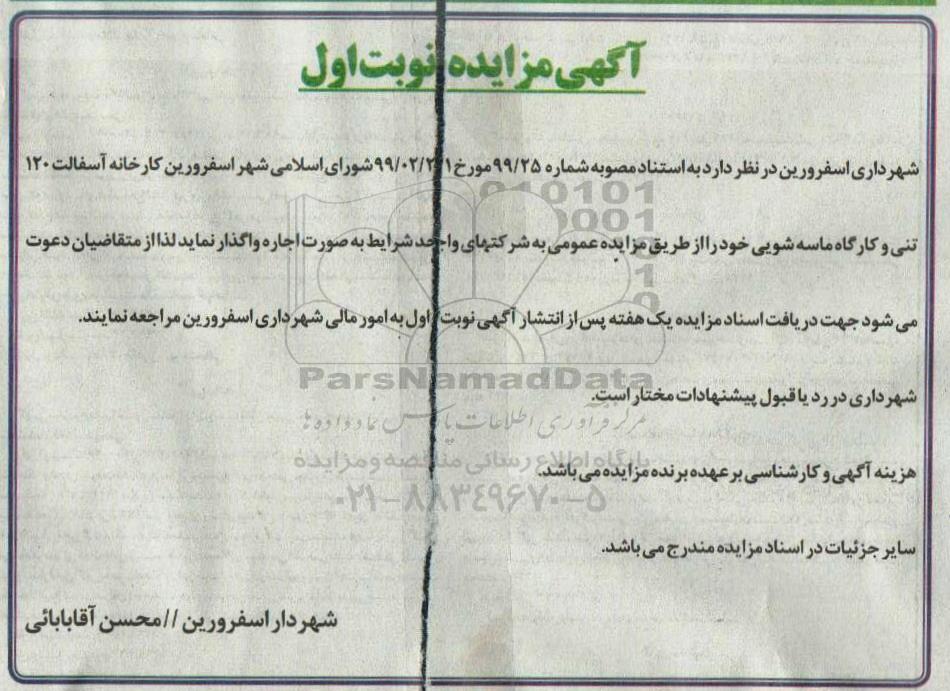 آگهی مزایده نوبت اول
شهرداری اسفرورین در نظر دارد به استناد مصوبه شماره ۹۹/۲۵ مورخ ۹۹/۰۲/۲۱ شورای اسلامی شهر اسفرورین کارخانه آسفالت ۱۲۰
تنی و کارگاه ماسه شویی خود را از طریق مزایده عمومی به شرکتهای واجد شرایط به صورت اجاره واگذار نماید لذا از متقاضیان دعوت
می شود جهت دریافت اسناد مزایده یک هفته پس از انتشار آگهی نوبت اول به امور مالی شهرداری اسفرورین مراجعه نمایند.
ParsNamadData
شهرداری در رد یا قبول پیشنهادات مختار است.
مرکز فرآوری اطلاعات پارس نماد داده ها
پایگاه اطلاع رسانی مناقصه و مزایده
هزینه آگهی و کارشناسی بر عهده برنده مزایده می باشد.
۰۲۱-۸۸۳۴۹۶۷۰-۵
سایر جزئیات در اسناد مزایده مندرج می باشد.
شهردار اسفرورین // محسن آقابابائی